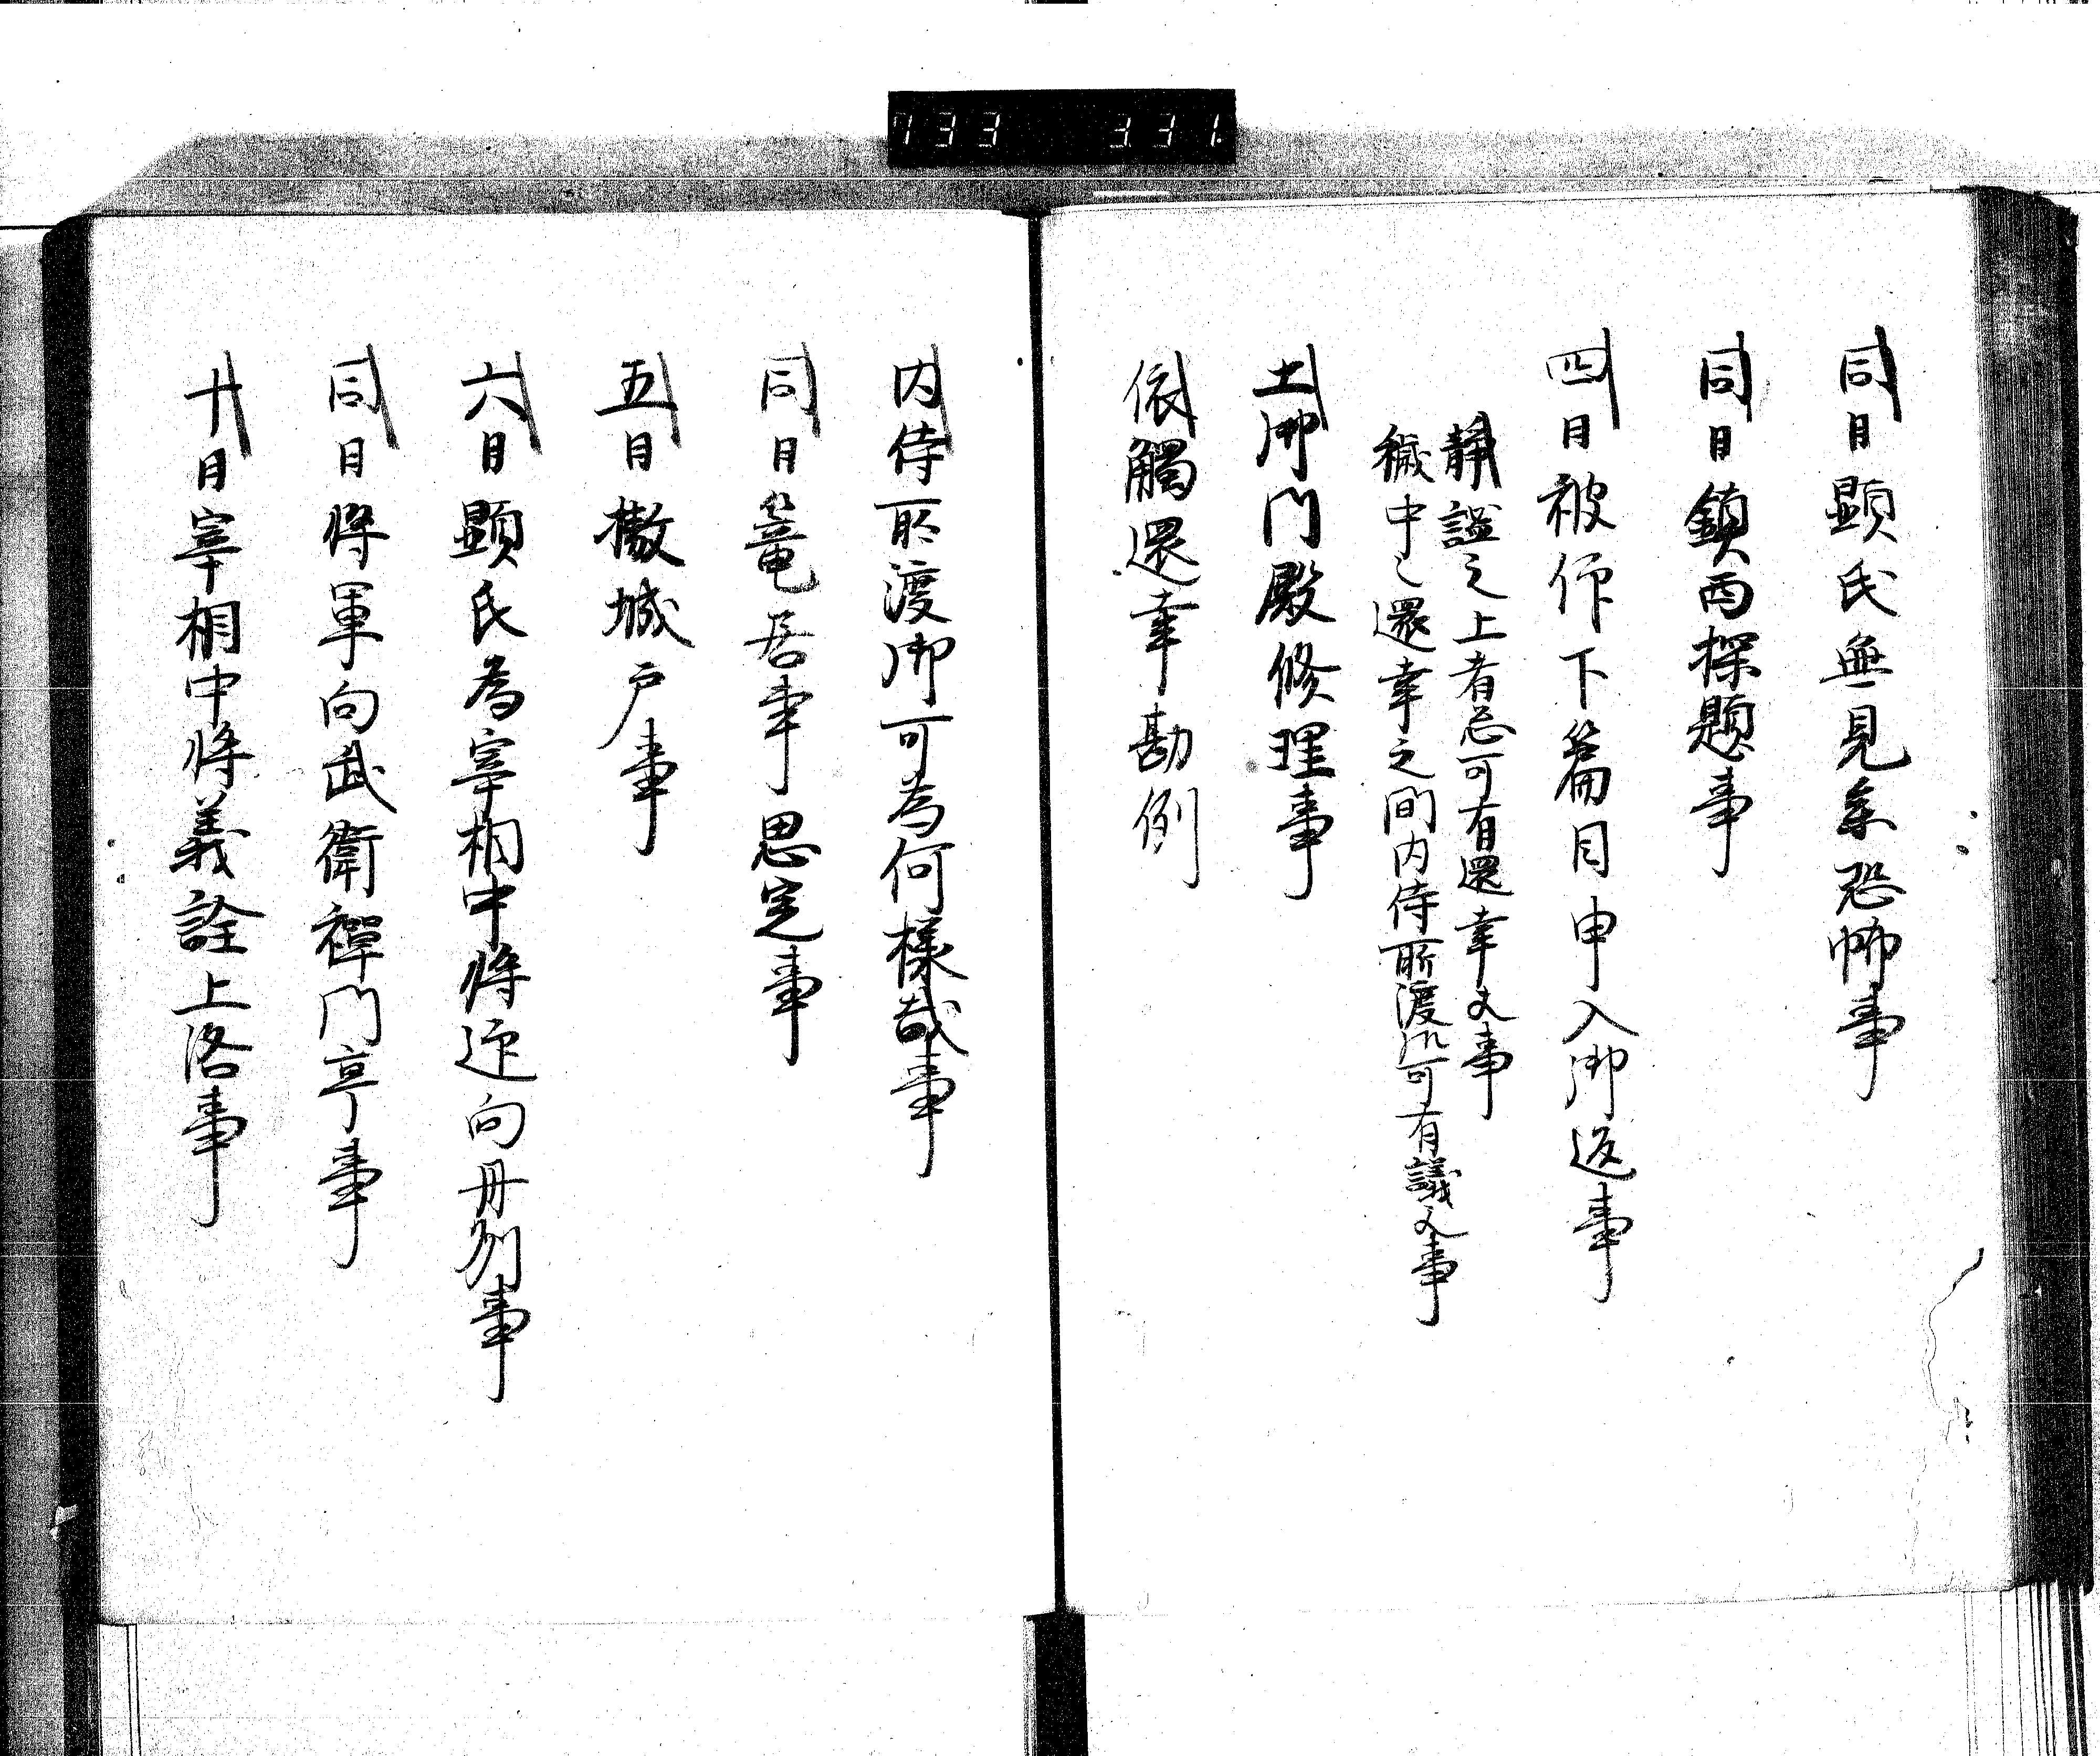 733 331
同日顕氏無見参恐怖事
同日鎮西探題事
四日被仰下篇目申入御返事
静謐之上者忩可有還幸文事
穢中々還幸之間内侍所渡御可有議文事
土御門殿修理事
依觸還幸勘例
内侍所渡御可為何様哉事
同日篭居事思定事
五日撤城戸事
六日顕氏為宰相中将迎向丹州事
同日将軍向武衛禅門亭事
十日宰相中将義詮上洛事